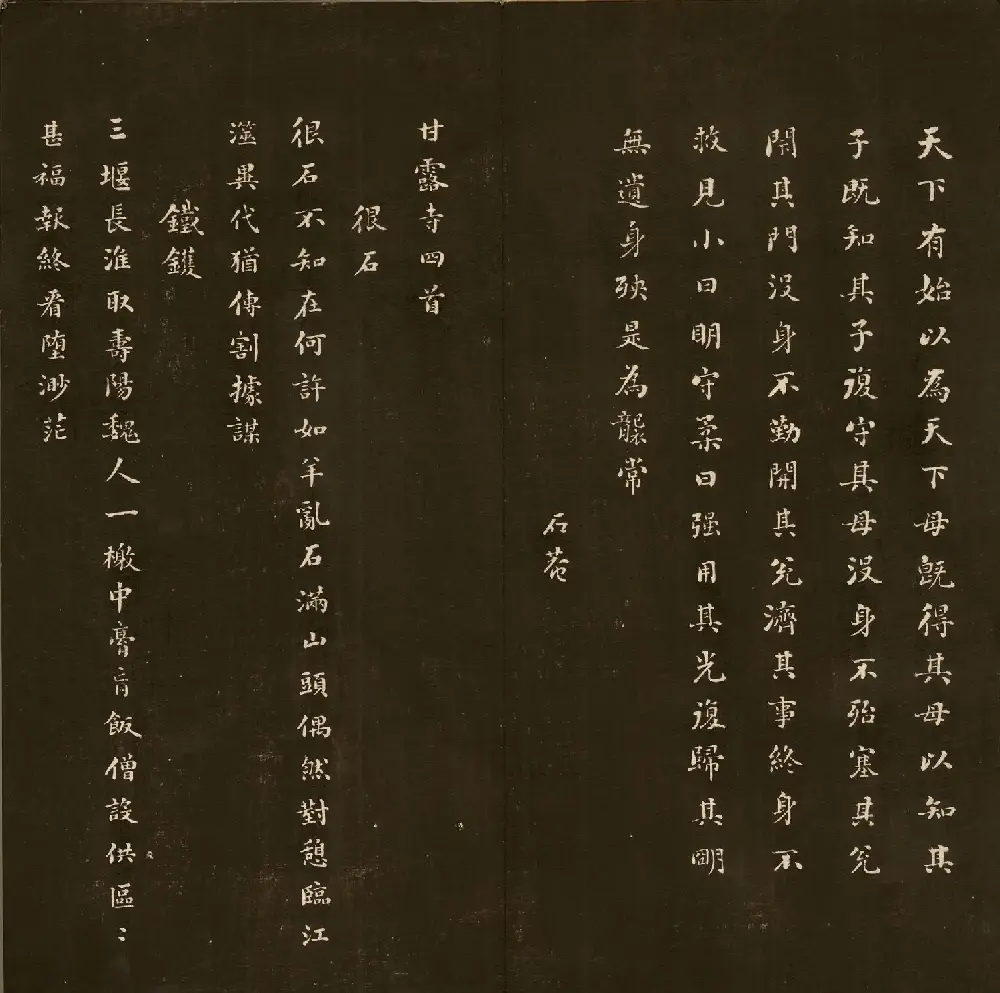 天下有始以為天下母既得其母以知其
子既知其子復守其母没身不殆塞其兊
閉其門没身不勤開其兊濟其事終身不
救見小曰明守柔曰强用其光復歸其明
無遺身殃是為襲常
石菴
甘露寺四首
很石
很石不知在何許如羊亂石滿山頭偶然對憩臨江
滏異代猶傳割據謀
鐵鑊
三堰長淮取壽陽魏人一檄中膏肓飯僧設供區〻
甚福報終看墮渺茫